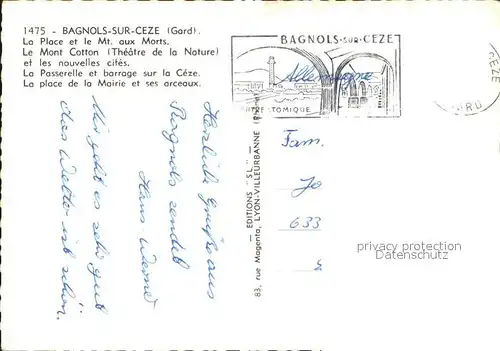 1475 - BAGNOLS-SUR-CEZE (Gard).
La Place et le Mt. aux Morts.
Le Mont Cotton (Théâtre de la Nature)
et les nouvelles cités.
La Passerelle et barrage sur la Cèze.
La place de la Mairie et ses arceaux.
BAGNOLS-SUR-CEZE
Allemagne
TRE ATOMIQUE
CEZE
Herzliche Grüße aus
Bagnols sendet
Hans Werner
Mir geht es sehr gut
Das Wetter ist schön.
— EDITIONS "SL" —
83, rue Magenta, LYON-VILLEURBANNE
Fam.
Jo
633
privacy protection
Datenschutz